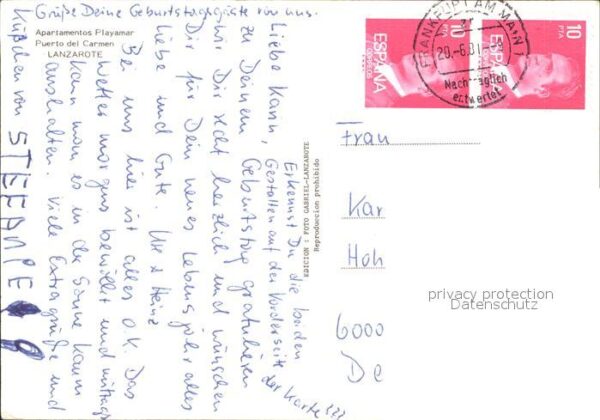 Grüße Deine Geburtstagsgäste von uns.
Apartamentos Playamar
Puerto del Carmen
LANZAROTE
Erkennst Du die beiden
Gestalten auf der Vorderseite der Karte???
Liebe Karin,
zu Deinem Geburtstag gratulieren
wir Dir recht herzlich und wünschen
Dir für Dein neues Lebensjahr alles
Liebe und Gute. Ute + Heinz
Bei uns hier ist alles O.K. Das
Wetter morgens bewölkt und mittags
kann man es in der Sonne kaum
aushalten. Viele Extragrüße und
Küßchen von STEFANIE
EDICION : FOTO GABRIEL-LANZAROTE
Reproduccion prohibido
10
PTA
ESPAÑA
CORREOS
10
PTA
ESPAÑA
FRANKFURT AM MAIN 1
20.-6.81
Nachträglich
entwertet
Frau
Kar
Hoh
6000
De
privacy protection
Datenschutz